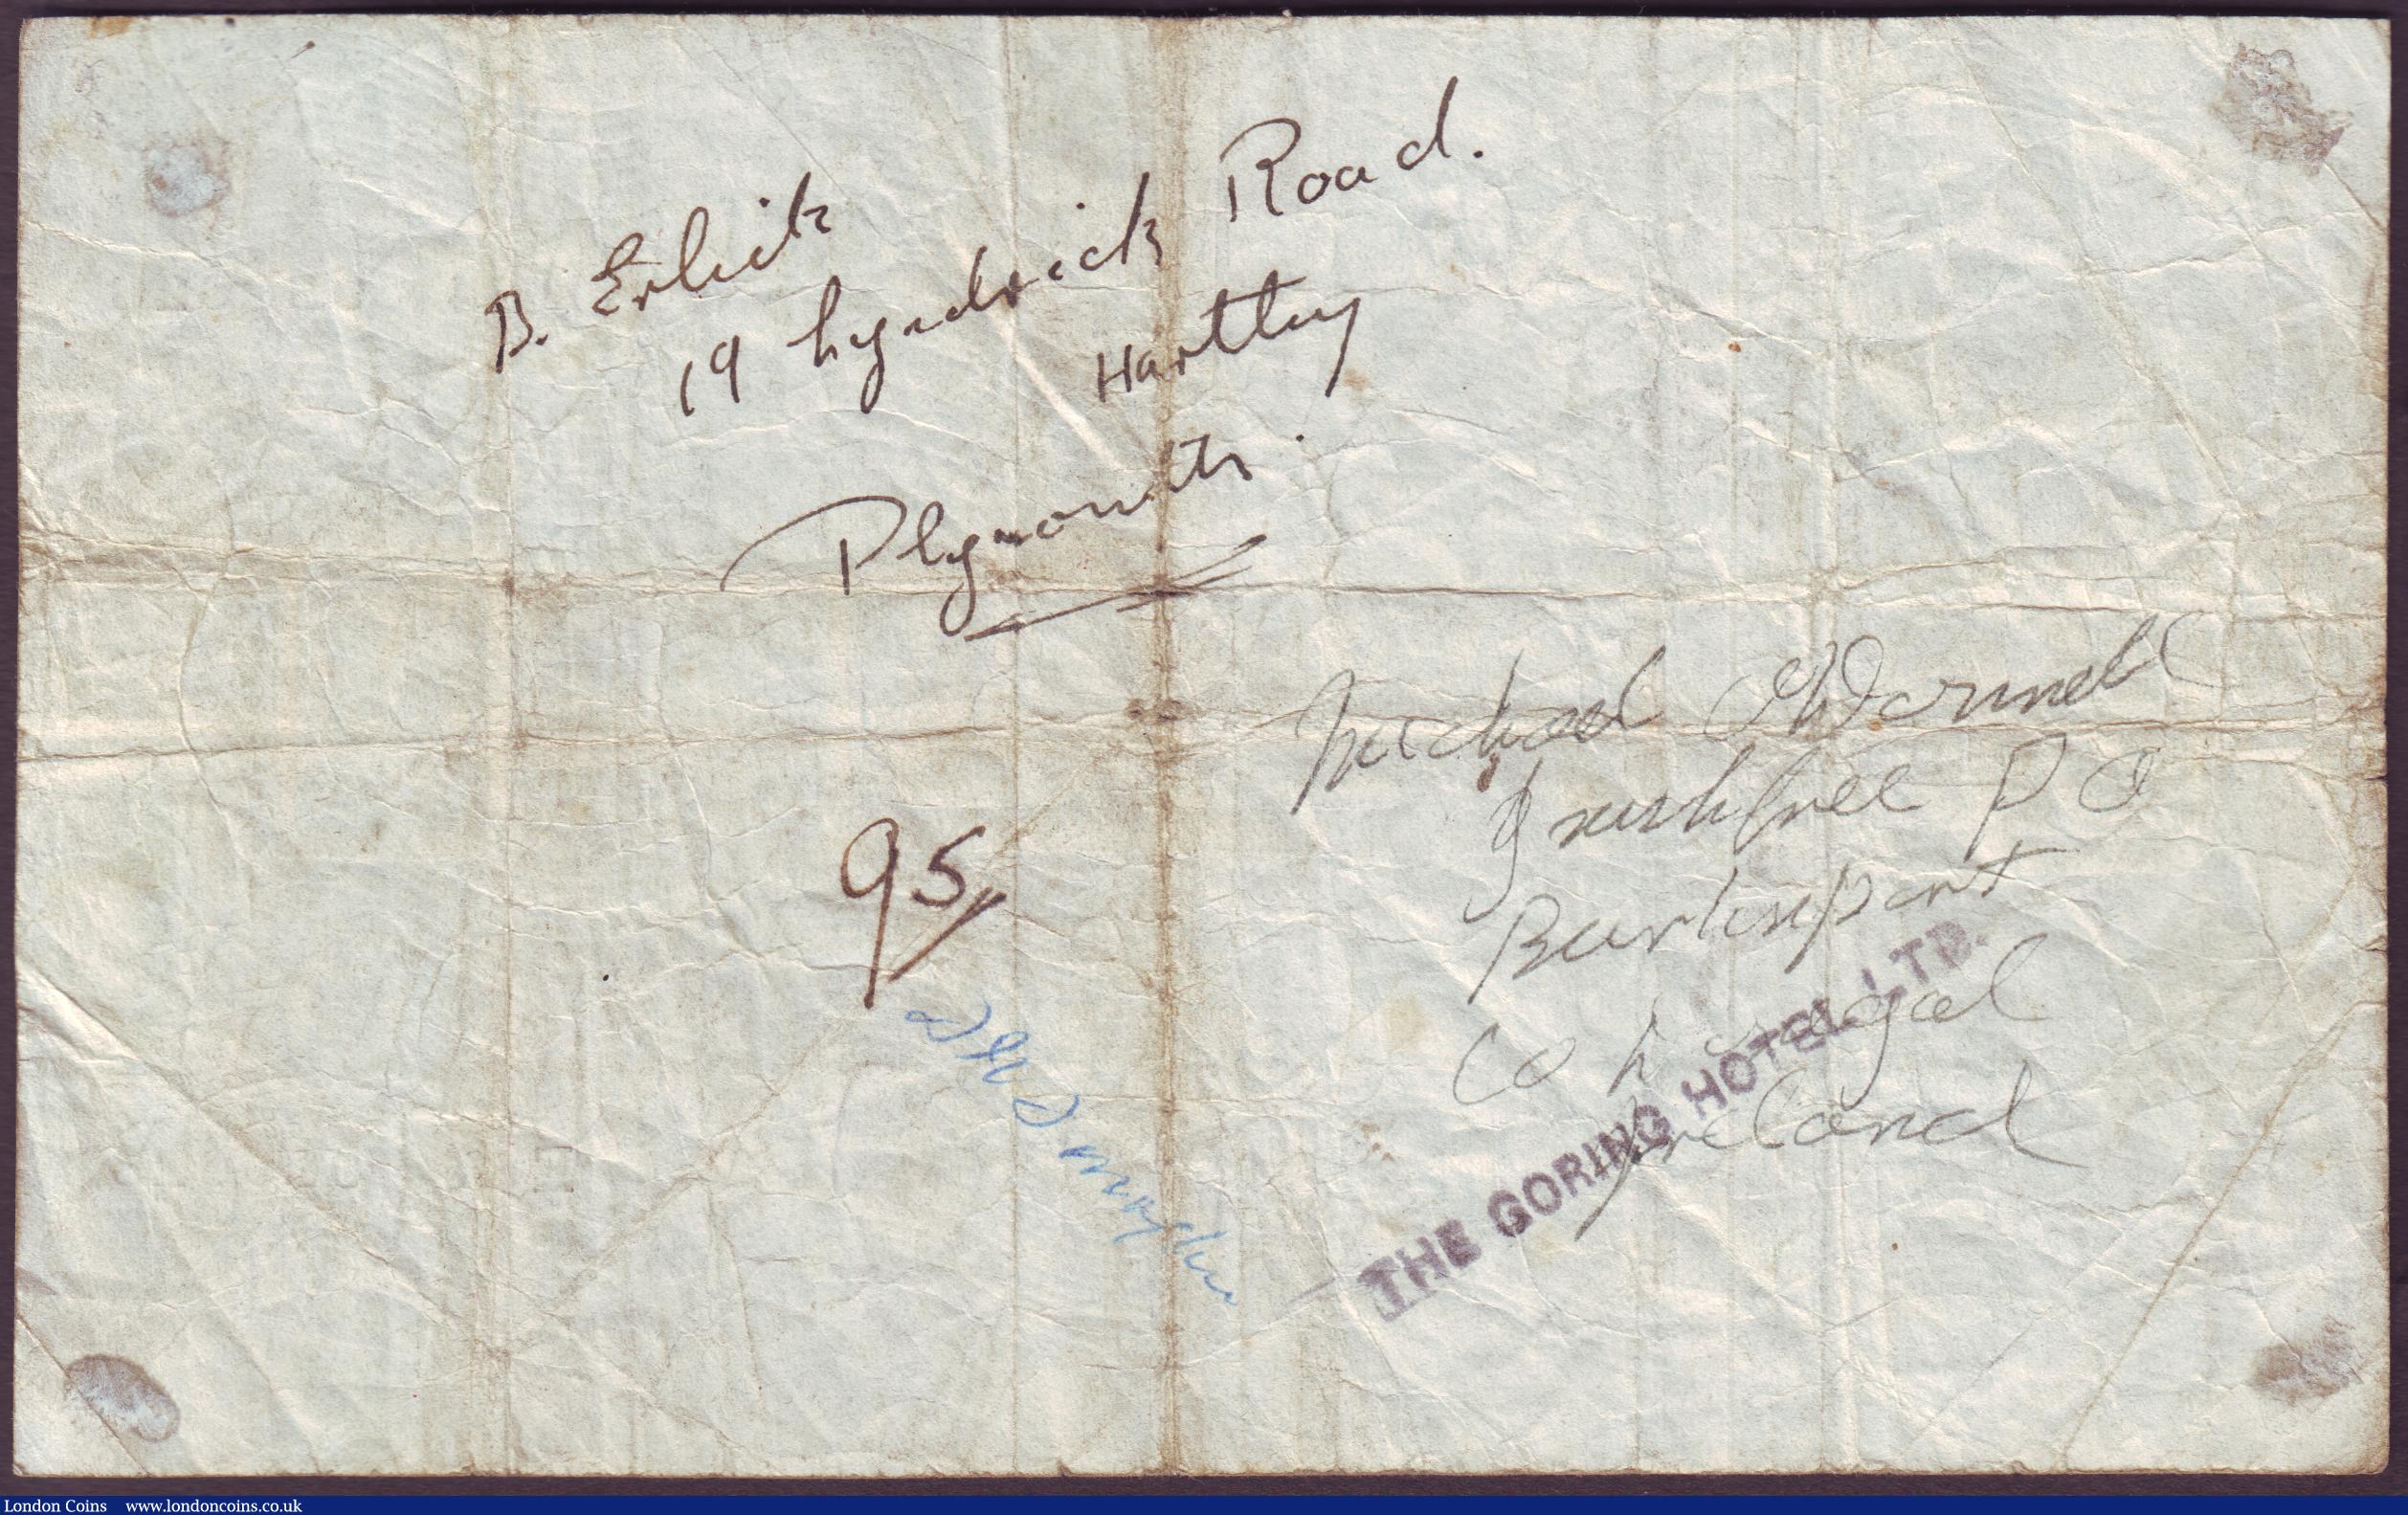 B. Erlich
19 Lyndrick Road.
Hartley
Plymouth.
Michael O'Donnell
P O
Burtonport
Co
Ireland
95
THE GORING HOTEL LTD.
London Coins www.londoncoins.co.uk